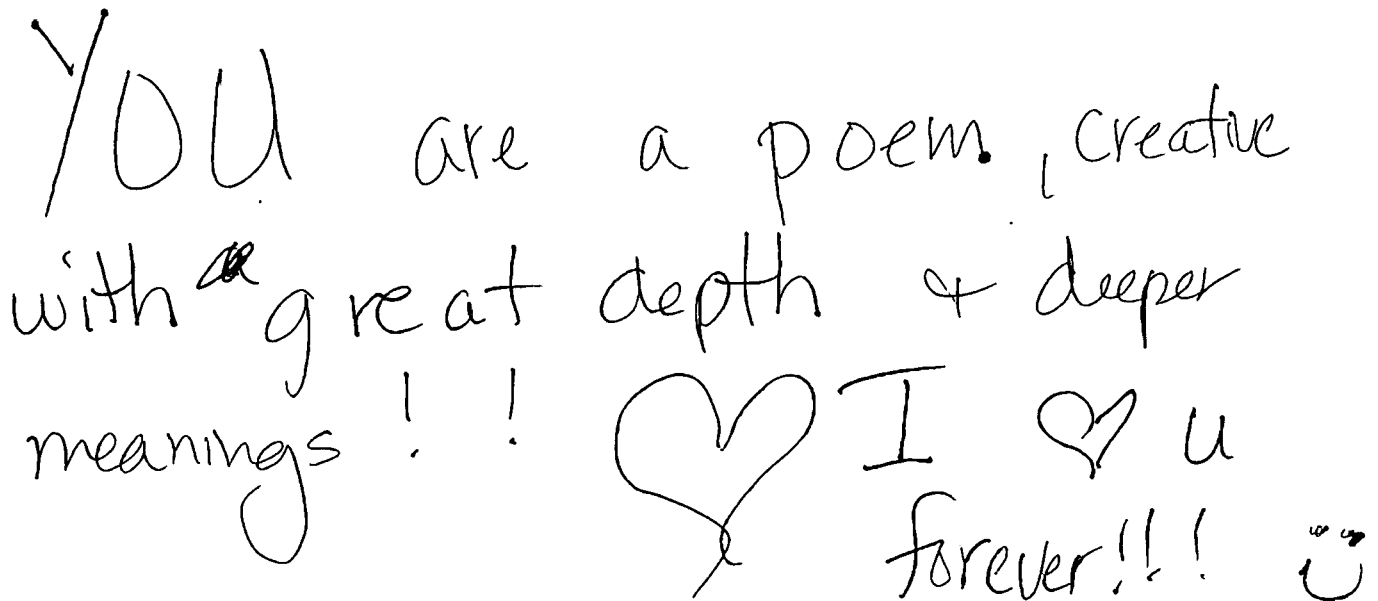 YOU are a poem, creative
with great depth & deeper
meanings!! ♡ I ♡ u
forever!!! ☺